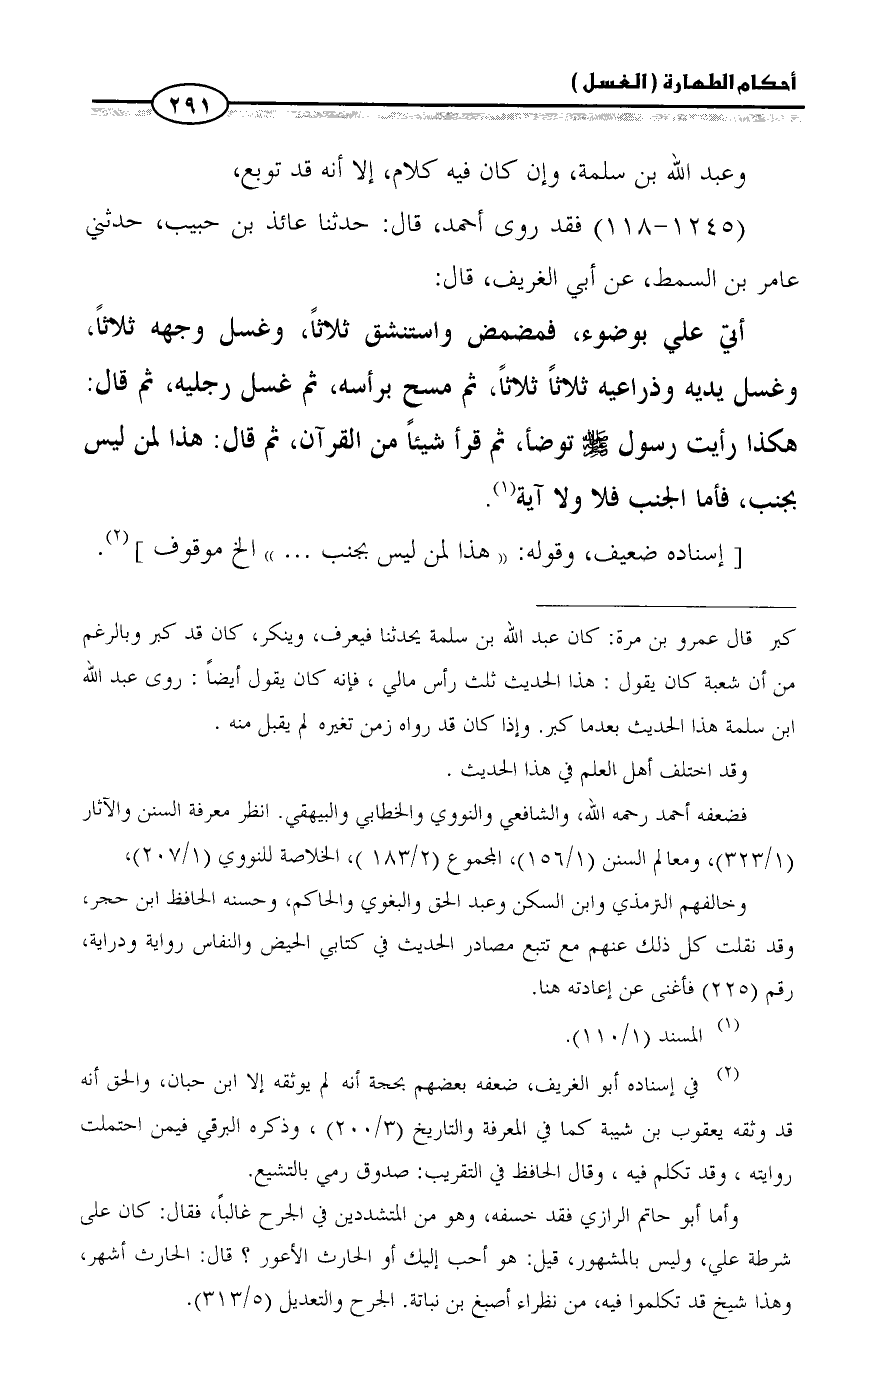 أحكام الطهارة (الغسل)
٢٩١
وعبد الله بن سلمة، وإن كان فيه كلام، إلا أنه قد توبع،
(١٢٤٥-١١٨) فقد روى أحمد، قال: حدثنا عائذ بن حبيب، حدثني
عامر بن السمط، عن أبي الغريف، قال:
أتي علي بوضوء، فمضمض واستنشق ثلاثاً، وغسل وجهه ثلاثاً،
وغسل يديه وذراعيه ثلاثاً ثلاثاً، ثم مسح برأسه، ثم غسل رجليه، ثم قال:
هكذا رأيت رسول ﷺ توضأ، ثم قرأ شيئاً من القرآن، ثم قال: هذا لمن ليس
بجنب، فأما الجنب فلا ولا آية(١).
[ إسناده ضعيف، وقوله: « هذا لمن ليس بجنب ... » الخ موقوف ](٢).
كبر قال عمرو بن مرة: كان عبد الله بن سلمة يحدثنا فيعرف، وينكر، كان قد كبر وبالرغم
من أن شعبة كان يقول : هذا الحديث ثلث رأس مالي ، فإنه كان يقول أيضاً : روى عبد الله
ابن سلمة هذا الحديث بعدما كبر. وإذا كان قد رواه زمن تغيره لم يقبل منه .
وقد اختلف أهل العلم في هذا الحديث .
فضعفه أحمد رحمه الله، والشافعي والنووي والخطابي والبيهقي. انظر معرفة السنن والآثار
(٣٢٣/١)، ومعالم السنن (١٥٦/١)، المجموع (١٨٣/٢ )، الخلاصة للنووي (٢٠٧/١)،
وخالفهم الترمذي وابن السكن وعبد الحق والبغوي والحاكم، وحسنه الحافظ ابن حجر،
وقد نقلت كل ذلك عنهم مع تتبع مصادر الحديث في كتابي الحيض والنفاس رواية ودراية،
رقم (٢٢٥) فأغنى عن إعادته هنا.
(١) المسند (١١٠/١).
(٢) في إسناده أبو الغريف، ضعفه بعضهم بحجة أنه لم يوثقه إلا ابن حبان، والحق أنه
قد وثقه يعقوب بن شيبة كما في المعرفة والتاريخ (٢٠٠/٣) ، وذكره البرقي فيمن احتملت
روايته ، وقد تكلم فيه ، وقال الحافظ في التقريب: صدوق رمي بالتشيع.
وأما أبو حاتم الرازي فقد خسفه، وهو من المتشددين في الجرح غالباً، فقال: كان على
شرطة علي، وليس بالمشهور، قيل: هو أحب إليك أو الحارث الأعور ؟ قال: الحارث أشهر،
وهذا شيخ قد تكلموا فيه، من نظراء أصبغ بن نباتة. الجرح والتعديل (٣١٣/٥).